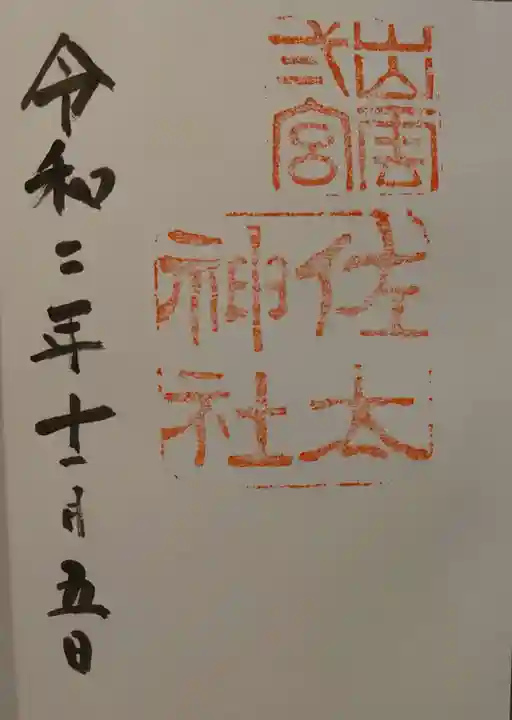 出雲
弍宮
佐太
神社
令和二年十二月五日